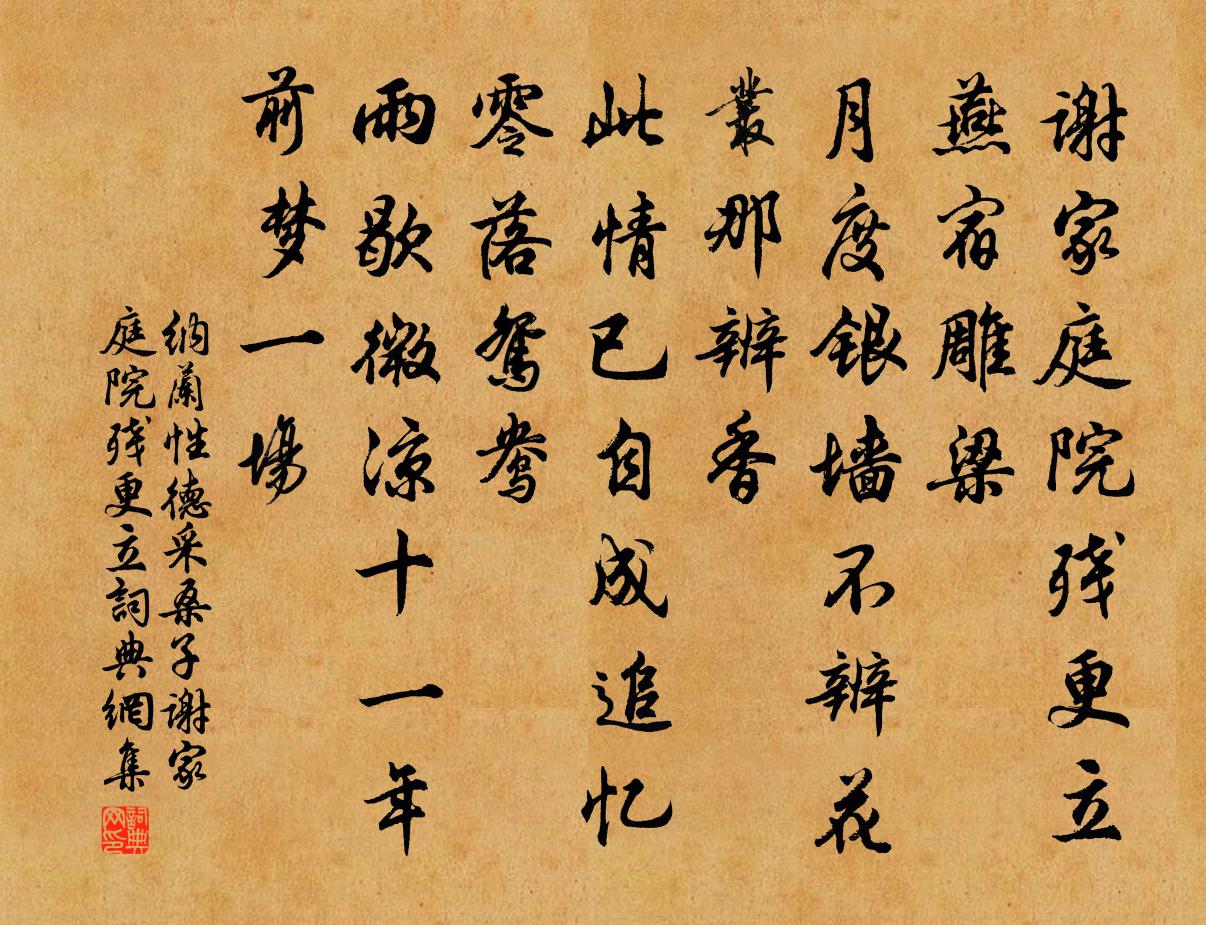 谢家庭院残更立
燕宿雕梁
月度银墙不辨花
丛那辨香
此情已自成追忆
零落鸳鸯
雨歇微凉十一年
前梦一场
纳兰性德采桑子谢家
庭院残更立詞典網集
詞典
网印